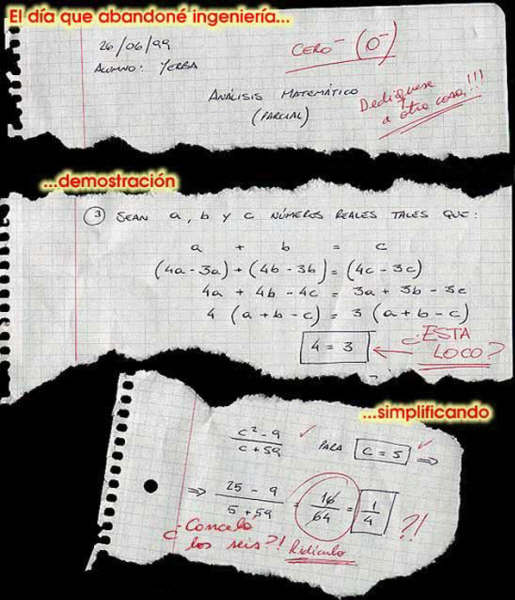 El día que abandoné ingeniería...
26/06/99
CERO⁻ (0⁻)
ALUMNO: YERBA
ANÁLISIS MATEMÁTICO
(PARCIAL)
Dedíquese
a otra cosa!!!
...demostración
③ SEAN a, b y c NÚMEROS REALES TALES QUE:
a + b = c
(4a - 3a) + (4b - 3b) = (4c - 3c)
4a + 4b - 4c = 3a + 3b - 3c
4 (a + b - c) = 3 (a + b - c)
4 = 3
¿ESTA
LOCO?
...simplificando
c² - 9 / c + 59 ✓ PARA c = 5 ✓ ⇒
⇒ 25 - 9 / 5 + 59 = 16 / 64 = 1 / 4 ?!
¿Cancelo
los seis?! Ridículo